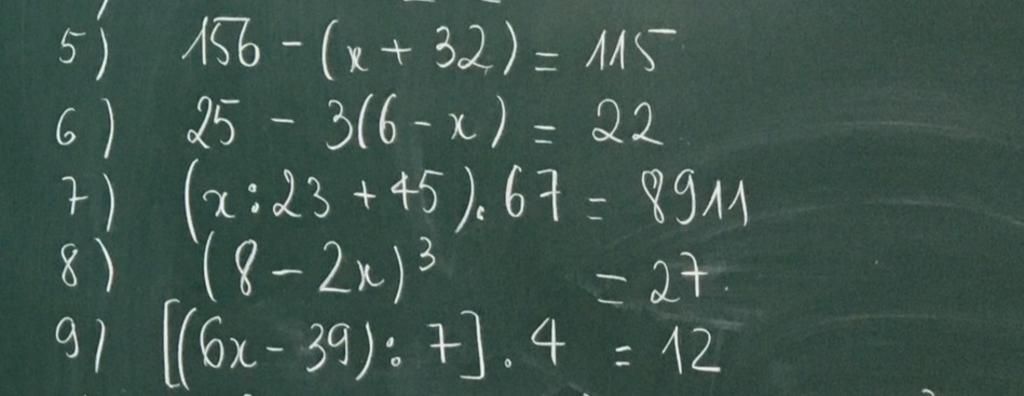 5) 156 - (x + 32) = 115
6) 25 - 3(6 - x) = 22
7) (x : 23 + 45) . 67 = 8911
8) (8 - 2x)³ = 27
9) [(6x - 39) : 7] . 4 = 12